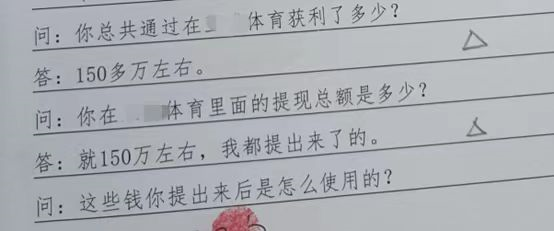 问：你总共通过在 体育获利了多少？
答：150多万左右。
问：你在 体育里面的提现总额是多少？
答：就150万左右，我都提出来了的。
问：这些钱你提出来后是怎么使用的？